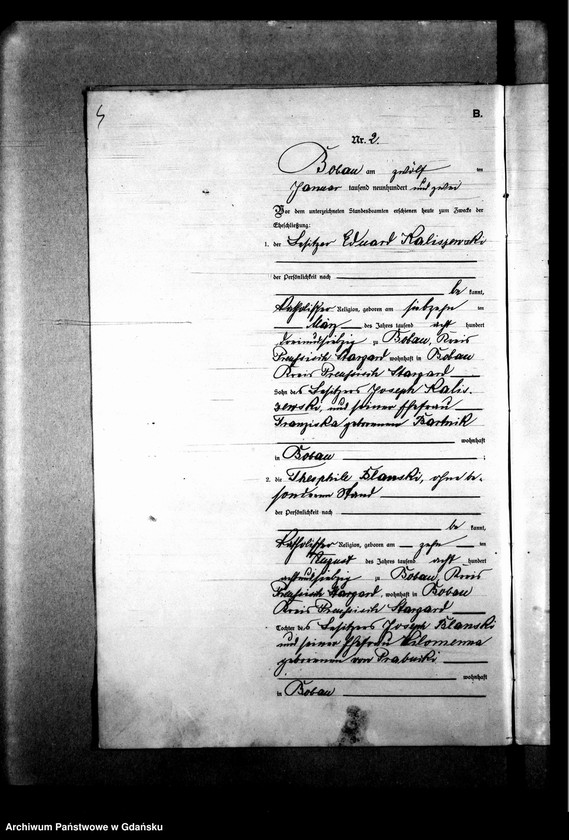 B.
Nr. 2.
Bobau am zwölf ten
Januar tausend neunhundert und zwei
Vor dem unterzeichneten Standesbeamten erschienen heute zum Zwecke der
Eheschließung:
1. der Besitzer Eduard Kaliszewski
der Persönlichkeit nach
be kannt,
katholischer Religion, geboren am siebzehn ten
März des Jahres tausend acht hundert
dreiundsiebzig zu Bobau, Kreis
Preußisch Stargard wohnhaft in Bobau
Kreis Preußisch Stargard
Sohn des Besitzers Joseph Kalis-
zewski, und seiner Ehefrau
Franziska geborenen Bartnik
wohnhaft
in Bobau ;
2. die Theophile Blanski, ohne be-
sonderen Stand
der Persönlichkeit nach
be kannt,
katholischer Religion, geboren am zehn ten
August des Jahres tausend acht hundert
achtundsiebzig zu Bobau, Kreis
Preußisch Stargard, wohnhaft in Bobau
Kreis Preußisch Stargard
Tochter des Besitzers Joseph Blanski
und seiner Ehefrau Filomenna
geborenen von
wohnhaft
in Bobau
Archiwum Państwowe w Gdańsku